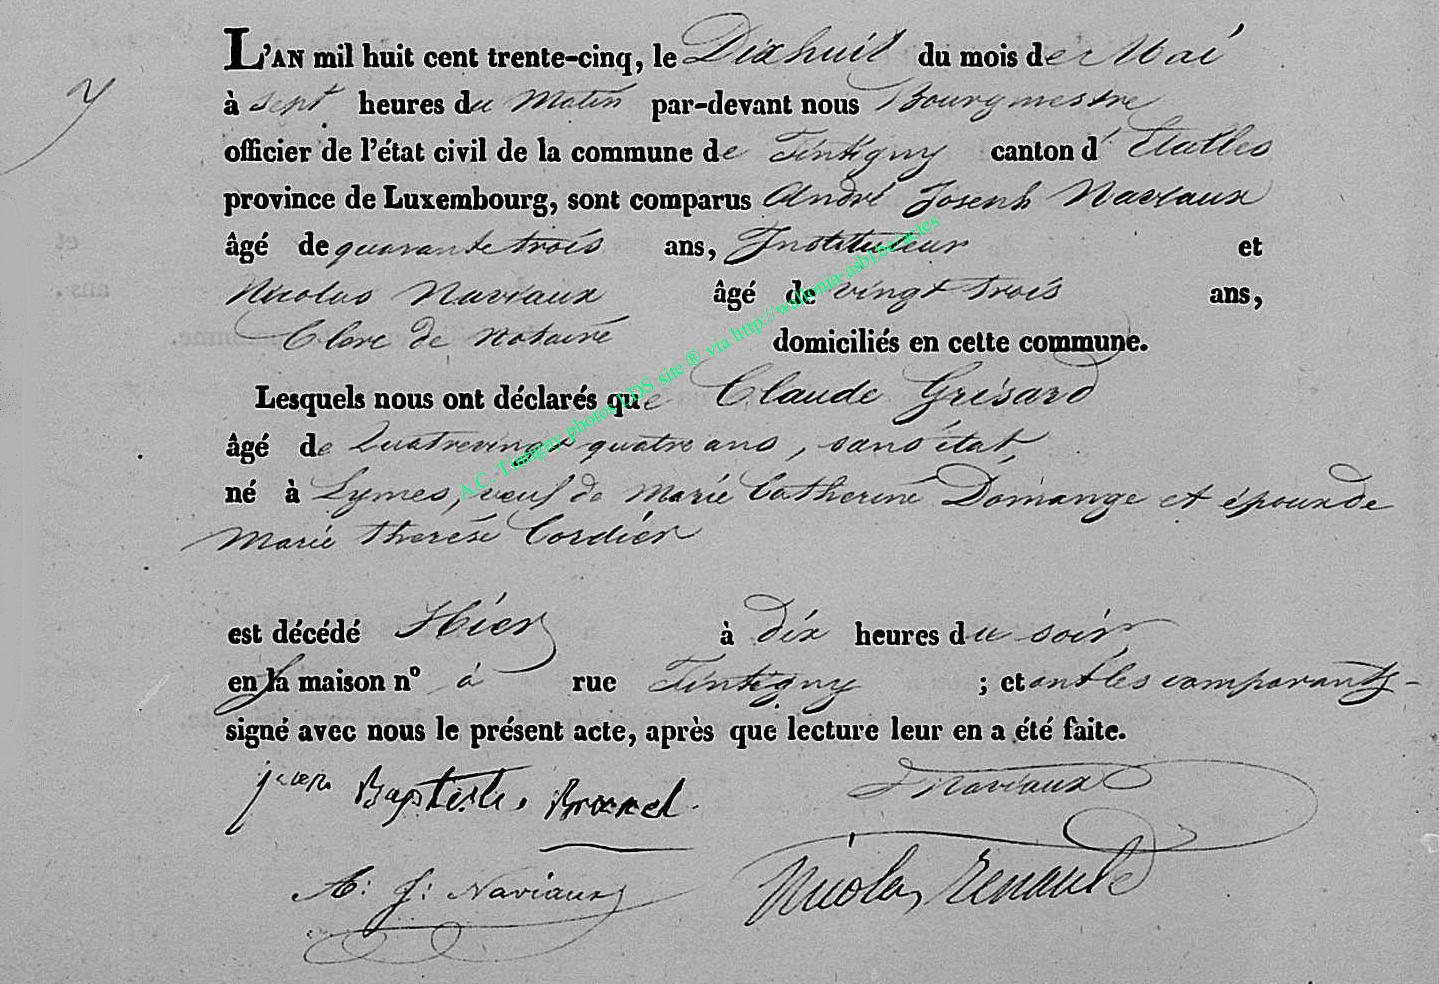 L'AN mil huit cent trente-cinq, le Dixhuit du mois de Mai
à sept heures du Matin par-devant nous Bourgmestre
officier de l'état civil de la commune de Tintigny canton d'Etalles
province de Luxembourg, sont comparus André Joseph Naviaux
âgé de quarante trois ans, Instituteur et
Nicolas Naviaux âgé de vingt trois ans,
Clerc de Notaire domiciliés en cette commune.
Lesquels nous ont déclarés que Claude Grisard
âgé de Quatrevingt quatre ans, sans état,
né à Lymes, veuf de Marie Catherine Domange et époux de
Marie Therése Cordier
est décédé Hier à dix heures du soir
en la maison nº à rue Tintigny ; et ont les comparants
signé avec nous le présent acte, après que lecture leur en a été faite.
jean Baptiste Naviaux
A: J: Naviaux Nicolas Renauld
A.C. Tintigny photos LDS site ® via http://wallonia-asbl.be/actes